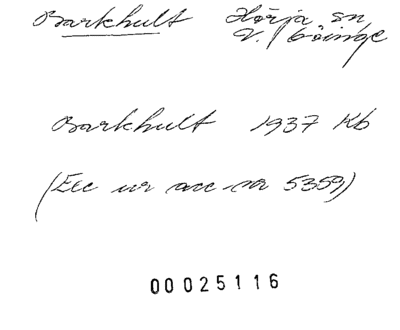 Barkhult Hörja sn
V. Göinge
Barkhult 1937 Kb
(Exc ur acc nr 5359)
00025116